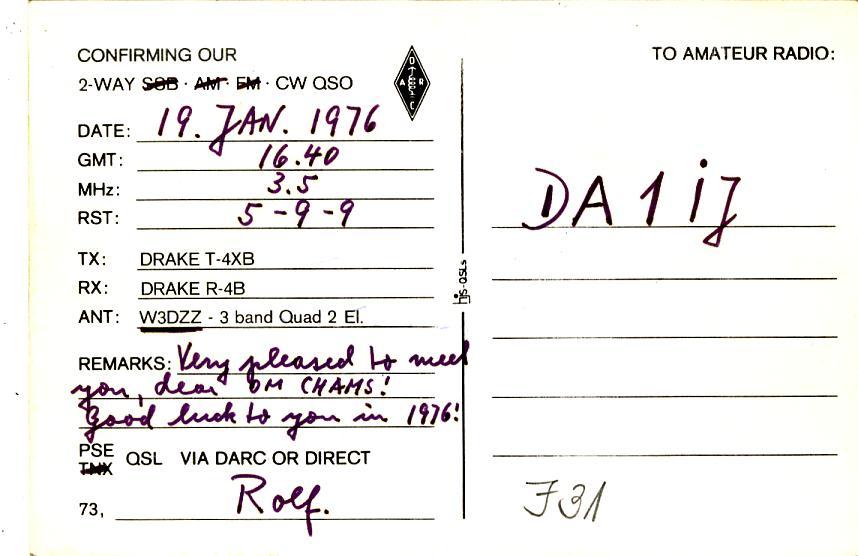 CONFIRMING OUR
2-WAY SSB · AM · FM · CW QSO
D
A R
C
DATE: 19. JAN. 1976
GMT: 16.40
MHz: 3.5
RST: 5-9-9
TX: DRAKE T-4XB
RX: DRAKE R-4B
ANT: W3DZZ - 3 band Quad 2 El.
REMARKS: Very pleased to meet
you, dear OM CHAMS!
Good luck to you in 1976!
PSE
TNX QSL VIA DARC OR DIRECT
73, Rolf.
hjs-QSLs
TO AMATEUR RADIO:
DA1iJ
F31